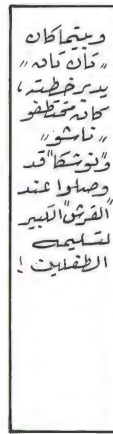 وبينما كان
"تان تان"
يدبر خطته،
كان مختطفو
"ناشو"
و"نوشكا" قد
وصلوا عند
"القرش" الكبير
لتسليمه
الطفلين !